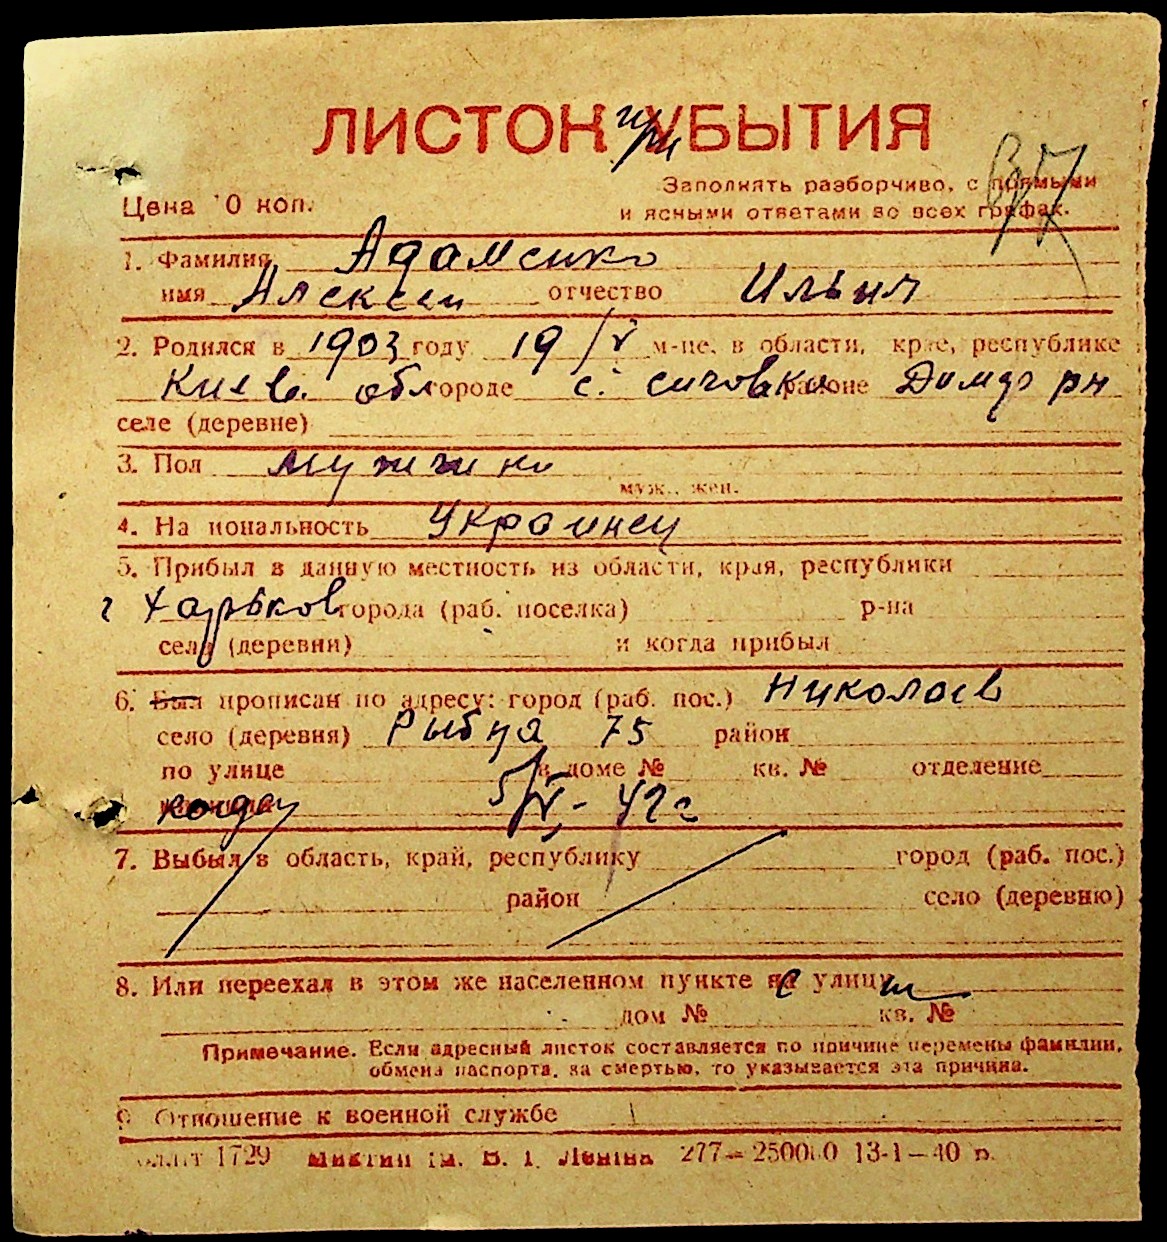 ЛИСТОК при УБЫТИЯ
Заполнять разборчиво, с прямыми
Цена 10 коп. и ясными ответами во всех графах.
1. Фамилия Адаменко
имя Алексей отчество Ильич
2. Родился в 1903 году 19/V м-це, в области, крае, республике
Киев. обл городе с. районе Димер рн
селе (деревне)
3. Пол мужчина
муж., жен.
4. Национальность Украинец
5. Прибыл в данную местность из области, края, республики
г Харьков города (раб. поселка) р-на
села (деревни) и когда прибыл
6. Был прописан по адресу: город (раб. пос.) Николаев
село (деревня) Рыбная 75 район
по улице в доме № кв. № отделение
когда 5/IV - 42 г
7. Выбыл в область, край, республику город (раб. пос.)
район село (деревню)
8. Или переехал в этом же населенном пункте с улицы
дом № кв. №
Примечание. Если адресный листок составляется по причине перемены фамилии,
обмена паспорта, за смертью, то указывается эта причина.
9. Отношение к военной службе
1729 ім. В. І. Леніна 277— 13-1—40 р.